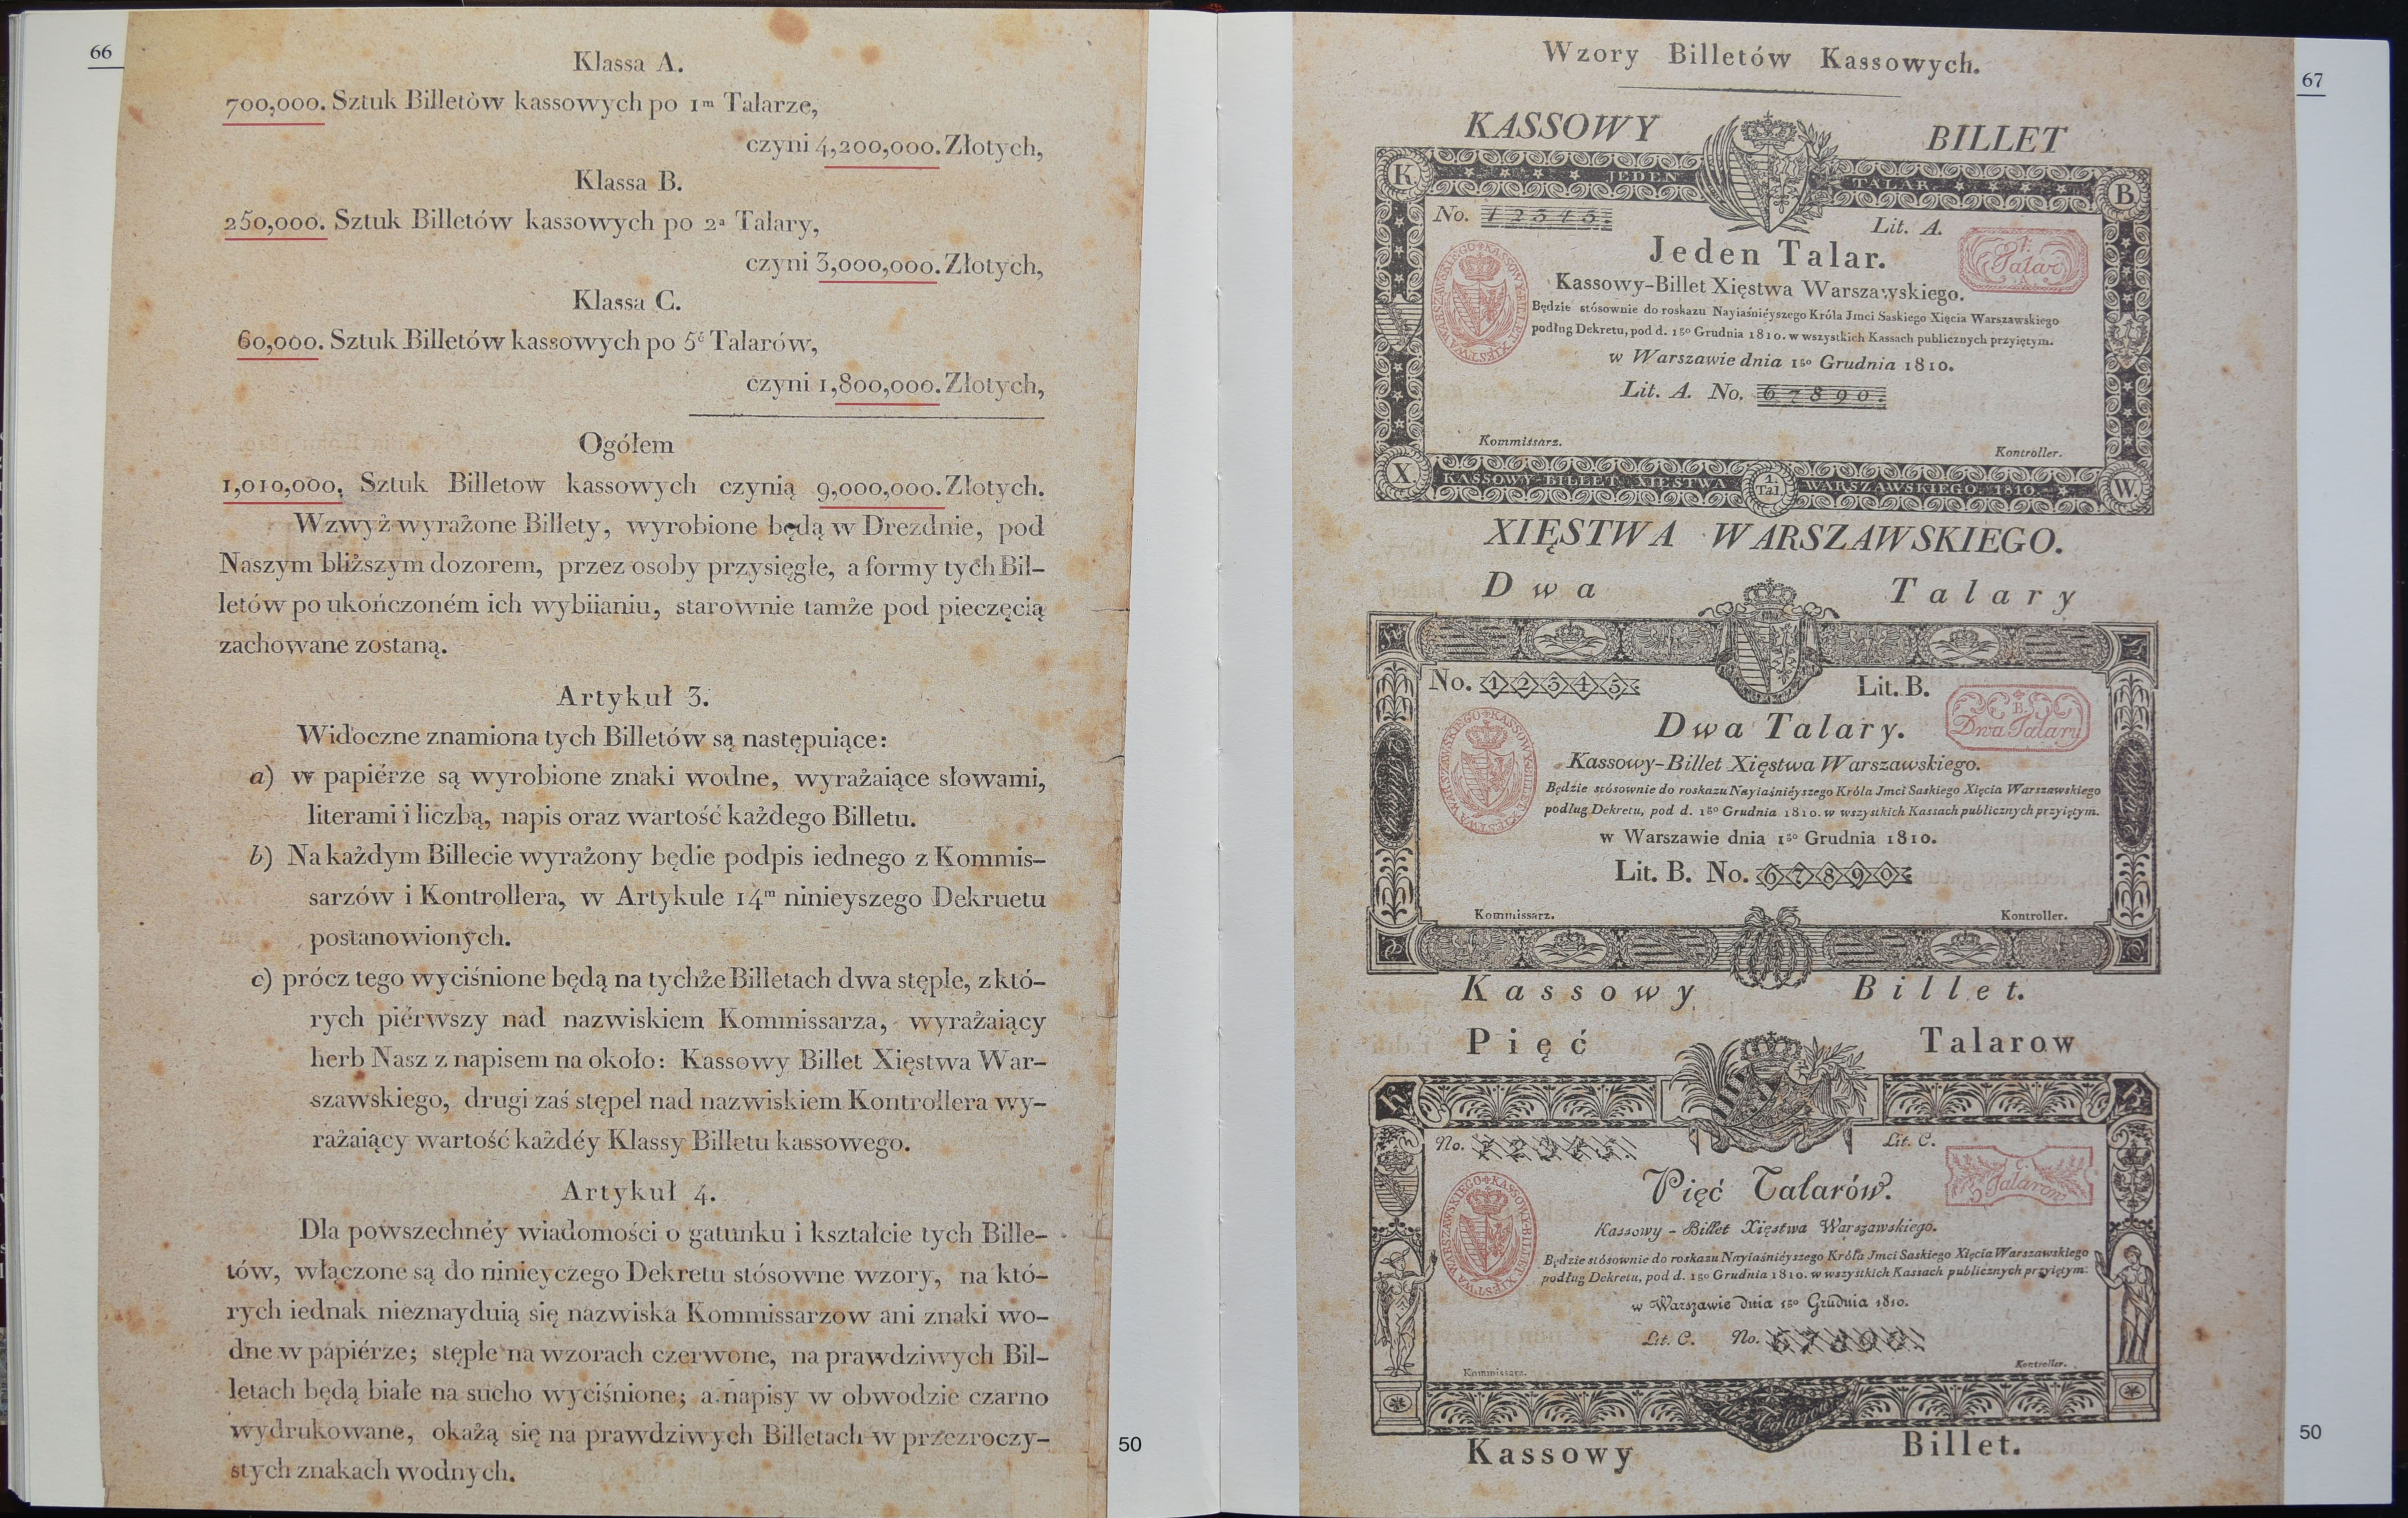 66
Klassa A.
700,000. Sztuk Billetòw kassowych po 1m Talarze,
czyni 4,200,000. Złotych,
Klassa B.
250,000. Sztuk Billetów kassowych po 2a Talary,
czyni 3,000,000. Złotych,
Klassa C.
60,000. Sztuk Billetów kassowych po 5ć Talarów,
czyni 1,800,000. Złotych,
Ogółem
1,010,000, Sztuk Billetow kassowych czynią 9,000,000. Złotych.
Wzwyż wyrażone Billety, wyrobione będą w Dreznie, pod
Naszym bliższym dozorem, przez osoby przysięgłe, a formy tych Bil–
letów po ukończoném ich wybiianiu, starownie tamże pod pieczęcią
zachowane zostaną.
Artykuł 3.
Widoczne znamiona tych Billetów są następuiące:
a) w papiérze są wyrobione znaki wodne, wyrażaiące słowami,
literami i liczbą, napis oraz wartość każdego Billetu.
b) Na każdym Billecie wyrażony będie podpis iednego z Kommis–
sarzów i Kontrollera, w Artykule 14m ninieyszego Dekruetu
postanowionych.
c) prócz tego wyciśnione będą na tychże Billetach dwa stęple, z któ–
rych piérwszy nad nazwiskiem Kommissarza, wyrażaiący
herb Nasz z napisem na około: Kassowy Billet Xięstwa War–
szawskiego, drugi zaś stępel nad nazwiskiem Kontrollera wy–
rażaiący wartość każdéy Klassy Billetu kassowego.
Artykuł 4.
Dla powszechnéy wiadomości o gatunku i kształcie tych Bille–
tów, włączone są do ninieyczego Dekretu stósowne wzory, na któ–
rych iednak nieznayduią się nazwiska Kommissarzow ani znaki wo–
dne w papiérze; stęple na wzorach czerwone, na prawdziwych Bil–
letach będą białe na sucho wyciśnione; a napisy w obwodzie czarno
wydrukowane, okażą się na prawdziwych Billetach w przezroczy–
stych znakach wodnych.
50
67
Wzory Billetów Kassowych.
KASSOWY BILLET
K. JEDEN TALAR B.
No. 12345. Lit. A.
Jeden Talar.
1. Talar A.
KASSOWY BILLET XIĘSTWA WARSZAWSKIEGO
Kassowy-Billet Xięstwa Warszawskiego.
Będzie stósownie do roskazu Nayiaśniéyszego Króla Jmci Saskiego Xięcia Warszawskiego
podług Dekretu, pod d. 1go Grudnia 1810. w wszystkich Kassach publicznych przyiętym.
w Warszawie dnia 1go Grudnia 1810.
Lit. A. No. 67890.
Kommissarz. Kontroller.
X. KASSOWY-BILLET XIĘSTWA 1. Tal. WARSZAWSKIEGO. 1810. W.
XIĘSTWA WARSZAWSKIEGO.
Dwa Talary
No. 12345. Lit. B.
Dwa Talary.
B. Dwa Talary
KASSOWY BILLET XIĘSTWA WARSZAWSKIEGO
Kassowy-Billet Xięstwa Warszawskiego.
Będzie stósownie do roskazu Nayiaśniéyszego Króla Jmci Saskiego Xięcia Warszawskiego
podług Dekretu, pod d. 1go Grudnia 1810. w wszystkich Kassach publicznych przyiętym.
w Warszawie dnia 1go Grudnia 1810.
Lit. B. No. 67890.
Kommissarz. Kontroller.
Kassowy Billet.
Pięć Talarow
K B
No. 12345. Lit. C.
Pięć Talarów.
C. 5 Talarow
KASSOWY BILLET XIĘSTWA WARSZAWSKIEGO
Kassowy - Billet Xięstwa Warszawskiego.
Będzie stósownie do roskazu Nayiaśniéyszego Króla Jmci Saskiego Xięcia Warszawskiego
podług Dekretu, pod d. 1go Grudnia 1810. w wszystkich Kassach publicznych przyiętym.
w Warszawie dnia 1go Grudnia 1810.
Lit. C. No. 67890.
Kommissarz. Kontroller.
Kassowy Billet.
50